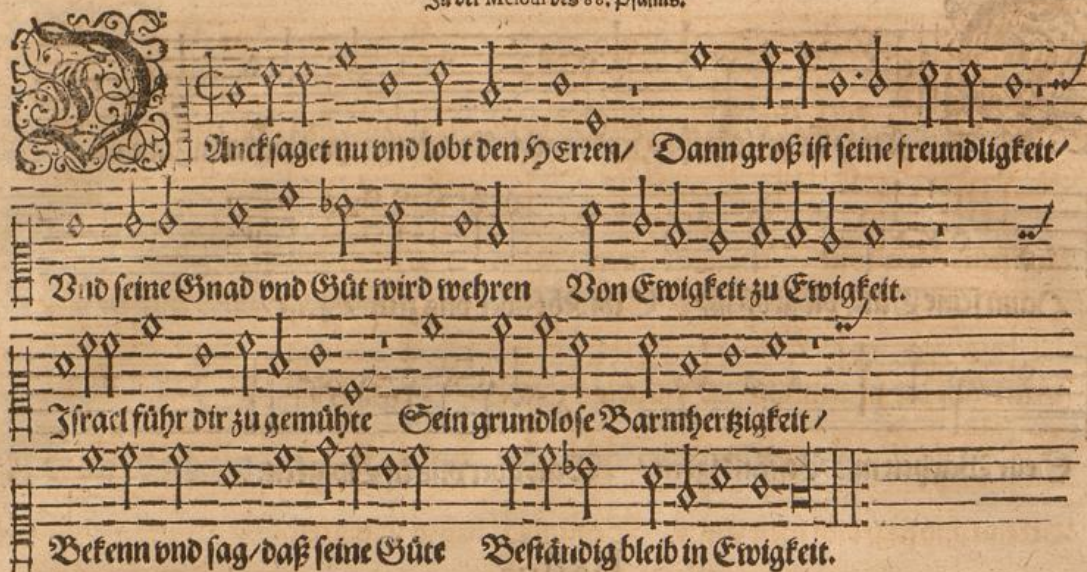 In der Melodi des 66. Psalms.
DAncksaget nu vnd lobt den HErren/ Dann groß ist seine freundligkeit/
Vnd seine Gnad vnd Güt wird wehren Von Ewigkeit zu Ewigkeit.
Israel führ dir zu gemühte Sein grundlose Barmhertzigkeit/
Bekenn vnd sag/daß seine Güte Beständig bleib in Ewigkeit.